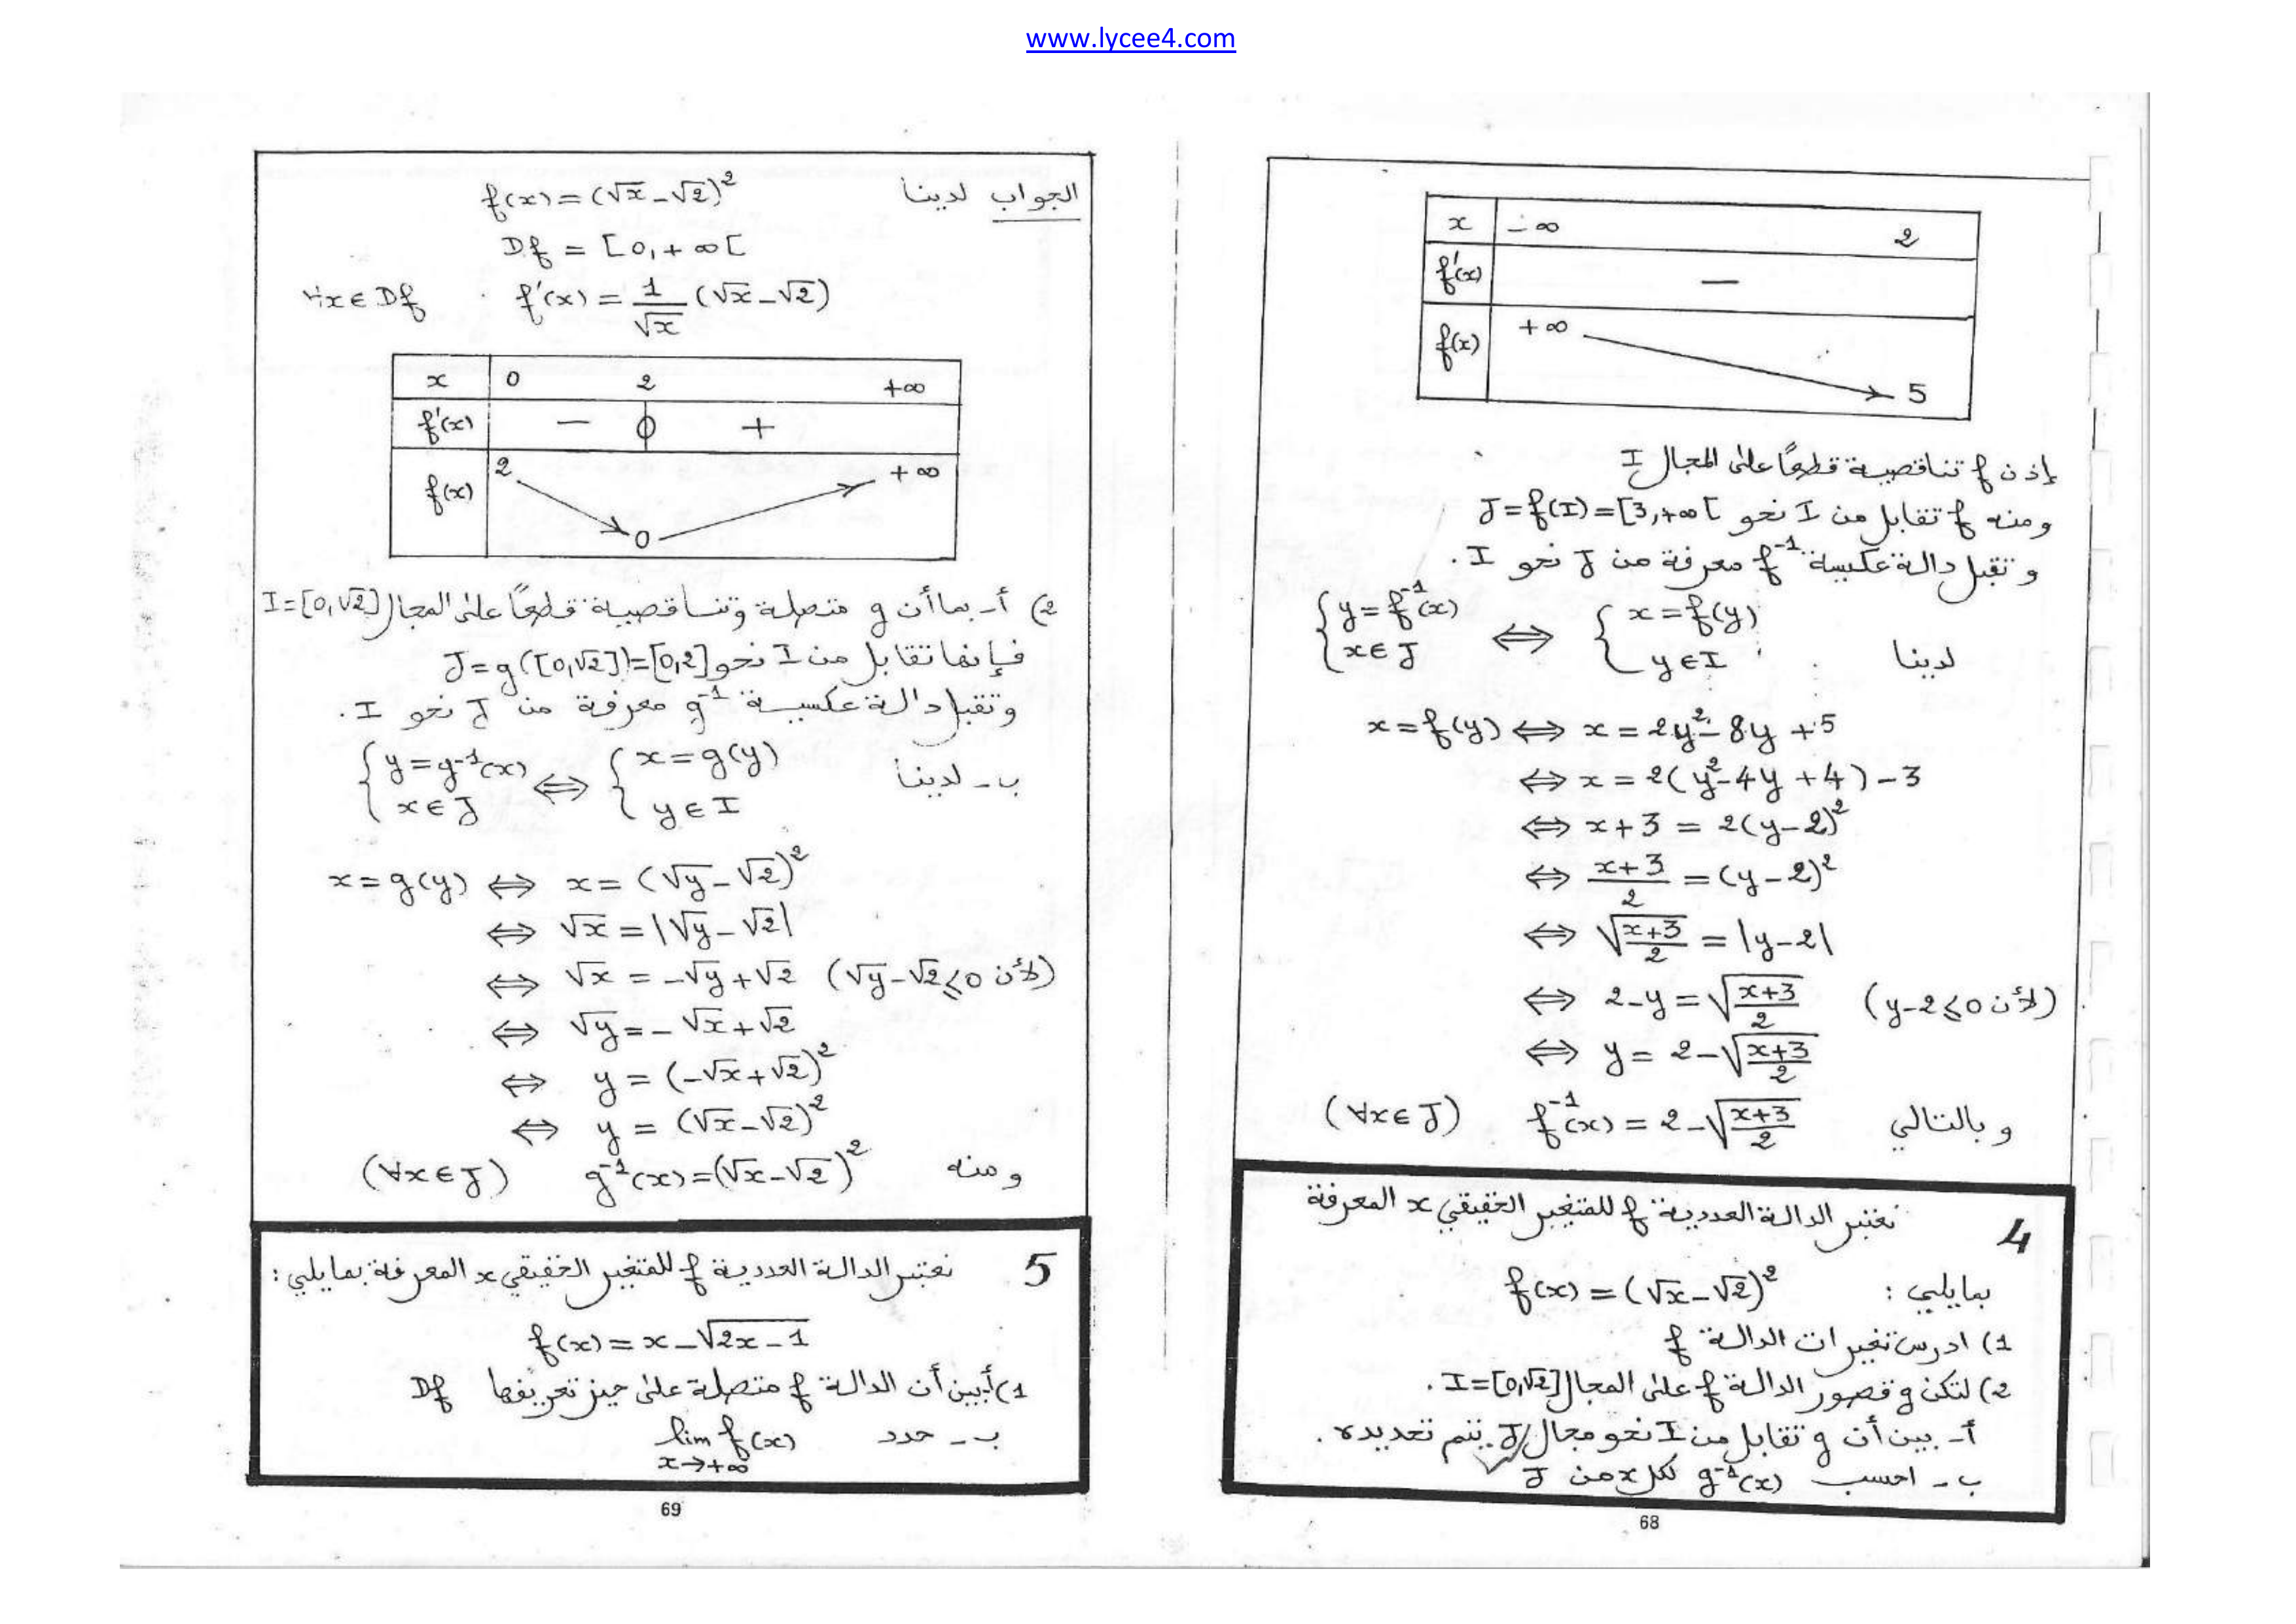 www.lycee4.com
x | -∞ 2
f'(x) | −
f(x) | +∞ 5
إذن f تناقصية قطعًا على المجال I
ومنه f تقابل من I نحو J=f(I)=[3,+∞[
وتقبل دالة عكسية f⁻¹ معرفة من J نحو I .
لدينا { y=f⁻¹(x) x∈J ⟺ { x=f(y) y∈I
x=f(y) ⟺ x=2y²-8y+5
⟺ x=2(y²-4y+4)-3
⟺ x+3=2(y-2)²
⟺ (x+3)/2=(y-2)²
⟺ √((x+3)/2)=|y-2|
⟺ 2-y=√((x+3)/2) (لأن y-2≤0)
⟺ y=2-√((x+3)/2)
وبالتالي f⁻¹(x)=2-√((x+3)/2) (∀x∈J)
4 نعتبر الدالة العددية f للمتغير الحقيقي x المعرفة
بمايلي : f(x)=(√x-√2)²
1) ادرس تغيرات الدالة f
2) لتكن g قصور الدالة f على المجال I=[0,√2] .
أ- بين أن g تقابل من I نحو مجال J يتم تحديده .
ب- احسب g⁻¹(x) لكل x من J
68
الجواب لدينا f(x)=(√x-√2)²
Df=[0,+∞[
∀x∈Df f'(x)=1/√x (√x-√2)
x | 0 2 +∞
f'(x) | − 0 +
f(x) | 2 0 +∞
2) أ- بما أن g متصلة وتناقصية قطعًا على المجال I=[0,√2]
فإنها تقابل من I نحو J=g([0,√2])=[0,2]
وتقبل دالة عكسية g⁻¹ معرفة من J نحو I .
ب- لدينا { y=g⁻¹(x) x∈J ⟺ { x=g(y) y∈I
x=g(y) ⟺ x=(√y-√2)²
⟺ √x=|√y-√2|
⟺ √x=-√y+√2 (لأن √y-√2≤0)
⟺ √y=-√x+√2
⟺ y=(-√x+√2)²
⟺ y=(√x-√2)²
ومنه g⁻¹(x)=(√x-√2)² (∀x∈J)
5 نعتبر الدالة العددية f للمتغير الحقيقي x المعرفة بمايلي :
f(x)=x-√(2x-1)
1) أ- بين أن الدالة f متصلة على حيز تعريفها Df
ب- حدد lim f(x) x→+∞
69